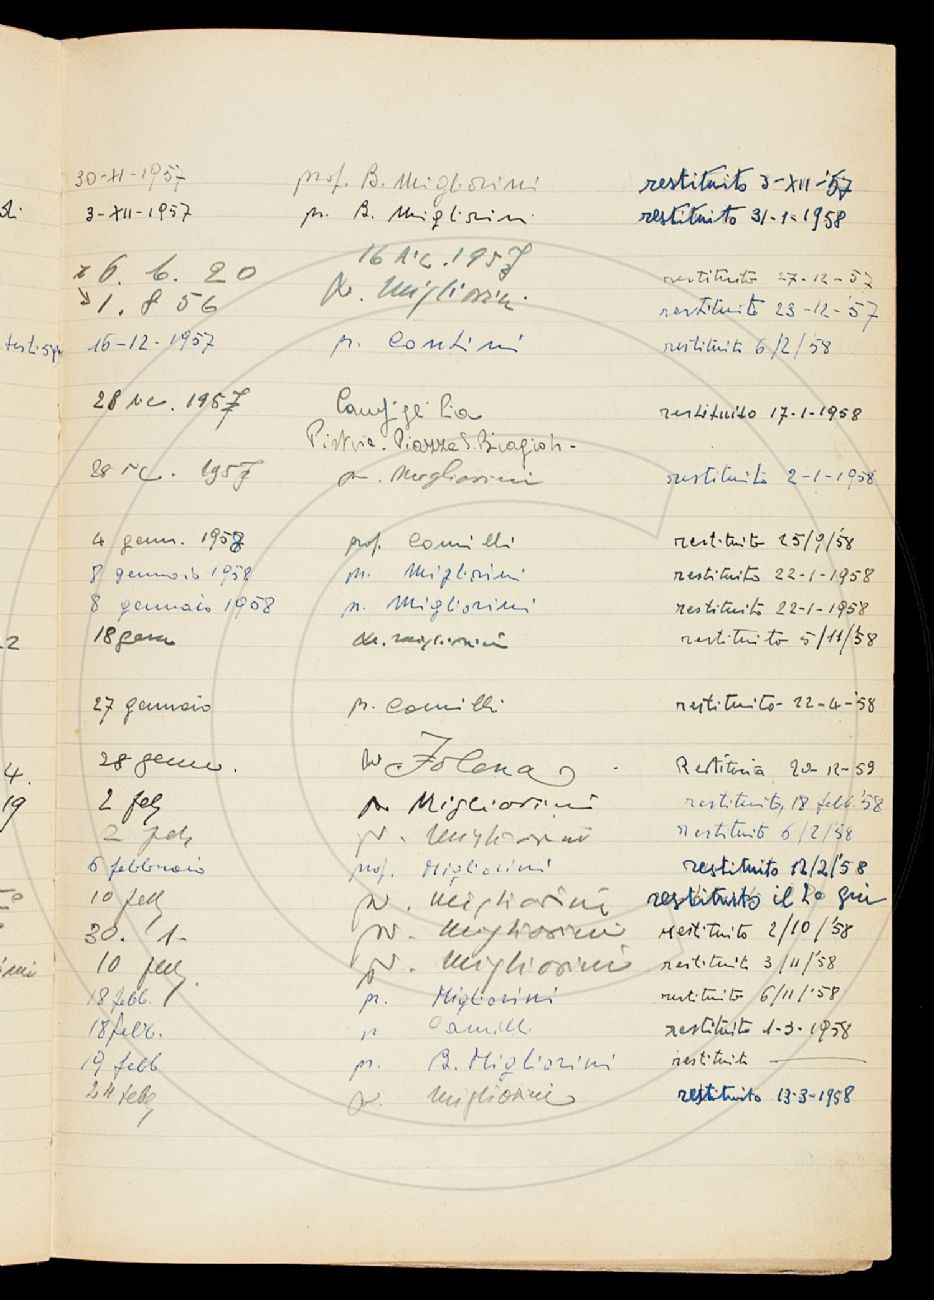 30-XI-1957 prof. B. Migliorini restituito 3-XII-'57
3-XII-1957 pr. B. Migliorini restituito 31-1-1958
16 dic. 1957
6. 6. 20 restituito 27-12-57
1. 8 56 pr. Migliorini restituito 23-12-'57
16-12-1957 pr. Contini restituito 6/2/58
28 dic. 1957 restituito 17-1-1958
Piazza S. Biagio
28 dic. 1957 pr. Migliorini restituito 2-1-1958
4 genn. 1958 prof. Camilli restituito 25/9/58
8 gennaio 1958 pr. Migliorini restituito 22-1-1958
8 gennaio 1958 pr. Migliorini restituito 22-1-1958
2 18 genn pr. Migliorini restituito 5/11/'58
27 gennaio pr. Camilli restituito - 22-4-'58
4. 28 genn. Folena Restituito 20-12-59
19 2 feb pr Migliorini restituito, 18 febb. '58
2 feb pr. Migliorini restituito 6/2/58
6 febbraio prof. Migliorini restituito 12/2/'58
10 feb pr. Migliorini restituito il
30. 1. pr. Migliorini restituito 2/10/'58
10 feb pr. Migliorini restituito 3/11/'58
18 febb. pr. Migliorini restituito 6/11/'58
18 febb. pr Camilli restituito 1-3-1958
19 febb pr. B. Migliorini restituito
24 feb pr. Migliorini restituito 13-3-1958